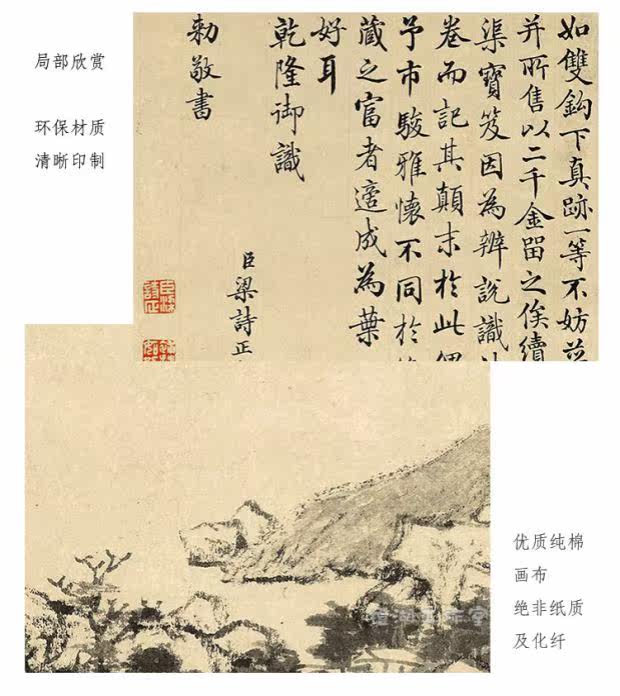 局部欣赏
环保材质
清晰印制
如雙鈎下真跡一等不妨
并所售以二千金留之俟續
渠寶笈因為辨說識
卷而記其顛末於此
予市駿雅懷不同於
藏之富者適成為葉
好耳
乾隆御識
臣梁詩正
勅敬書
优质纯棉
画布
绝非纸质
及化纤